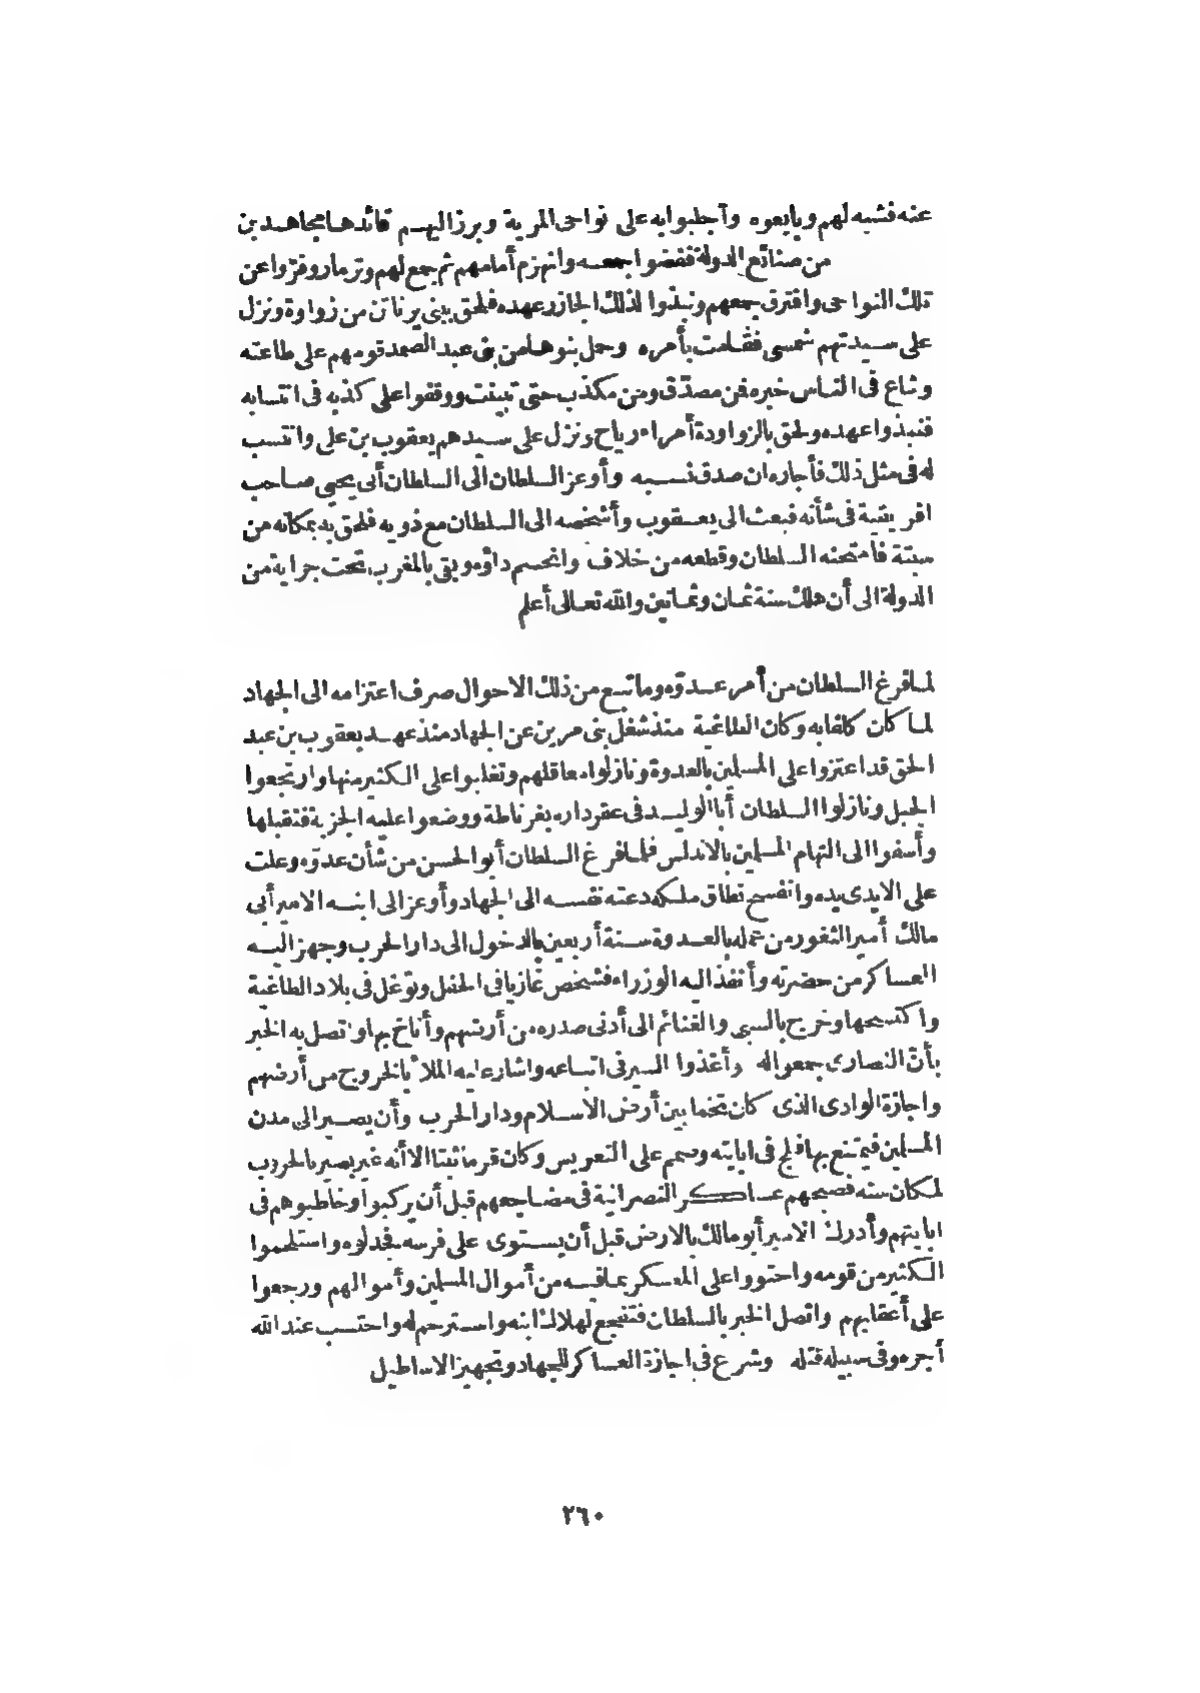 عنه فشبه لهم وبايعوه وأجلبوا به على نواحى المرية وبرز اليهم قائدها مجاهد بن
من صنائع الدولة ففضوا جمعه وانهزم أمامهم ثم جمع لهم وتر مار وفروا عن
تلك النواحى وافترق جمعهم ونبذوا لذلك الجازر عهده فلحق ببنى يرناتن من زواوة ونزل
على سيدتهم شمسى فقامت بأمره وحمل بنوها من بنى عبد الصمد قومهم على طاعته
وشاع فى الناس خبره فن مصدّق ومن مكذب حتى تبينت ووقفوا على كذبه فى انتسابه
فنبذوا عهده ولحق بالزواودة أمراء رياح ونزل على سيدهم يعقوب بن على وانتسب
له فى مثل ذلك فأجاره ان صدق نسبه وأوعز السلطان الى السلطان أبى يحيى صاحب
افريقية فى شأنه فبعث الى يعقوب وأشخصه الى السلطان مع ذويه فلحق به بمكانه من
سبتة فامتحنه السلطان وقطعه من خلاف وانحسم داؤه وبقى بالمغرب تحت جراية من
الدولة الى أن هلك سنة ثمان وثمانين والله تعالى أعلم
لما فرغ السلطان من أمر عدوّه وما تبع من ذلك الاحوال صرف اعتزامه الى الجهاد
لما كان كلفا به وكان الطاغية منذ شغل بنى مرين عن الجهاد منذ عهد يعقوب بن عبد
الحق قد اعتزوا على المسلمين بالعدوة ونازلوا معاقلهم وتغلبوا على الكثير منها وارتجعوا
الجبل ونازلوا السلطان أبا الوليد فى عقر داره بغرناطة ووضعوا عليه الجزية فتقبلها
وأسفوا الى التهام المسلمين بالاندلس فلما فرغ السلطان أبو الحسن من شأن عدوّه وعلت
على الايدى يده وانفسح نطاق ملكه دعته نفسه الى الجهاد وأوعز الى ابنه الامير أبى
مالك أمير الثغور من عمله بالعدوة سنة أربعين بالدخول الى دار الحرب وجهز اليه
العساكر من حضرته وأنفذ اليه الوزراء فشخص غازيا فى الحفل وتوغل فى بلاد الطاغية
واكتسحها وخرج بالسبى والغنائم الى أدنى صدره من أرضهم وأناخ بها واتصل به الخبر
بأن النصارى جمعوا له وأغذوا السير فى اتباعه واشار عليه الملأ بالخروج من أرضهم
واجازة الوادى الذى كان تخما بين أرض الاسلام ودار الحرب وأن يصير الى مدن
المسلمين فيمتنع بها فلج فى ايايته وصمم على التعريس وكان قرما ثبتا الا أنه غير بصير بالحروب
لمكان سنه فصبحهم عساكر النصرانية فى مضاجعهم قبل أن يركبوا وخاطبوهم فى
ابايتهم وأدرك الامير أبو مالك بالارض قبل أن يستوى على فرسه فجدلوه واستلحموا
الكثير من قومه واحتووا على المعسكر بما فيه من أموال المسلمين وأموالهم ورجعوا
على أعقابهم واتصل الخبر بالسلطان فتفجع لهلاك ابنه واسترحم له واحتسب عند الله
أجره وفى سبيله قتله وشرع فى اجازة العساكر للجهاد وتجهيز الاساطيل
٢٦٠